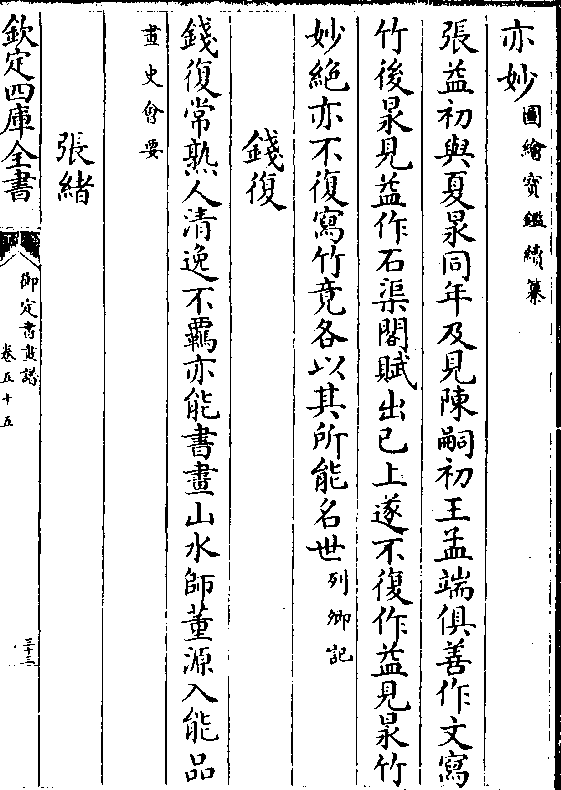 亦妙圖繪寳鑑續纂
張益初與夏㫤同年及見陳嗣初王孟端俱善作文寫
竹後㫤見益作石渠閣賦出已上遂不復作益見㫤竹
妙絶亦不復寫竹竟各以其所能名世列卿記
錢復
錢復常熟人清逸不羈亦能書畫山水師董源入能品
畫史㑹要
張緒
欽定四庫全書
御定書畫譜
卷五十五
三十三